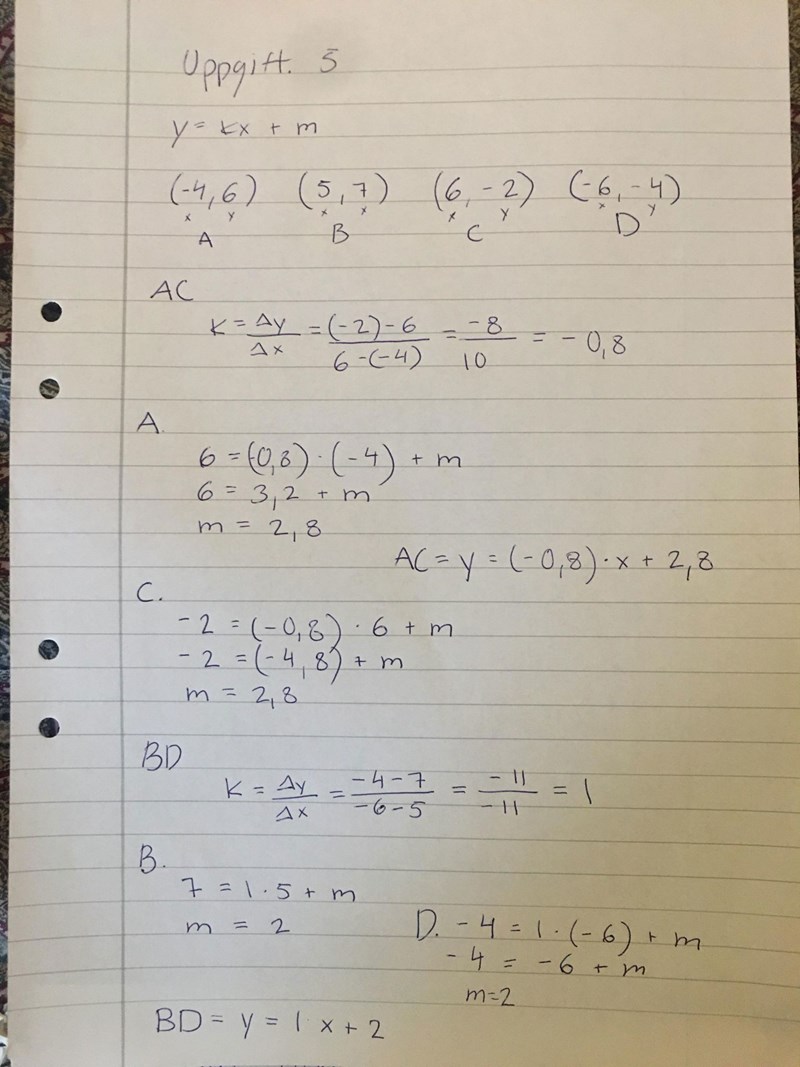 Uppgift. 5
y = kx + m
(-4, 6) (5, 7) (6, -2) (-6, -4)
x y x x x y x y
A B C D
AC
K = Δy/Δx = (-2)-6/6-(-4) = -8/10 = -0,8
A.
6 = (0,8) · (-4) + m
6 = 3,2 + m
m = 2,8
AC = y = (-0,8) · x + 2,8
C.
-2 = (-0,8) · 6 + m
-2 = (-4,8) + m
m = 2,8
BD
K = Δy/Δx = -4-7/-6-5 = -11/-11 = 1
B.
7 = 1 · 5 + m
m = 2
D. -4 = 1 · (-6) + m
-4 = -6 + m
m=2
BD = y = 1 x + 2